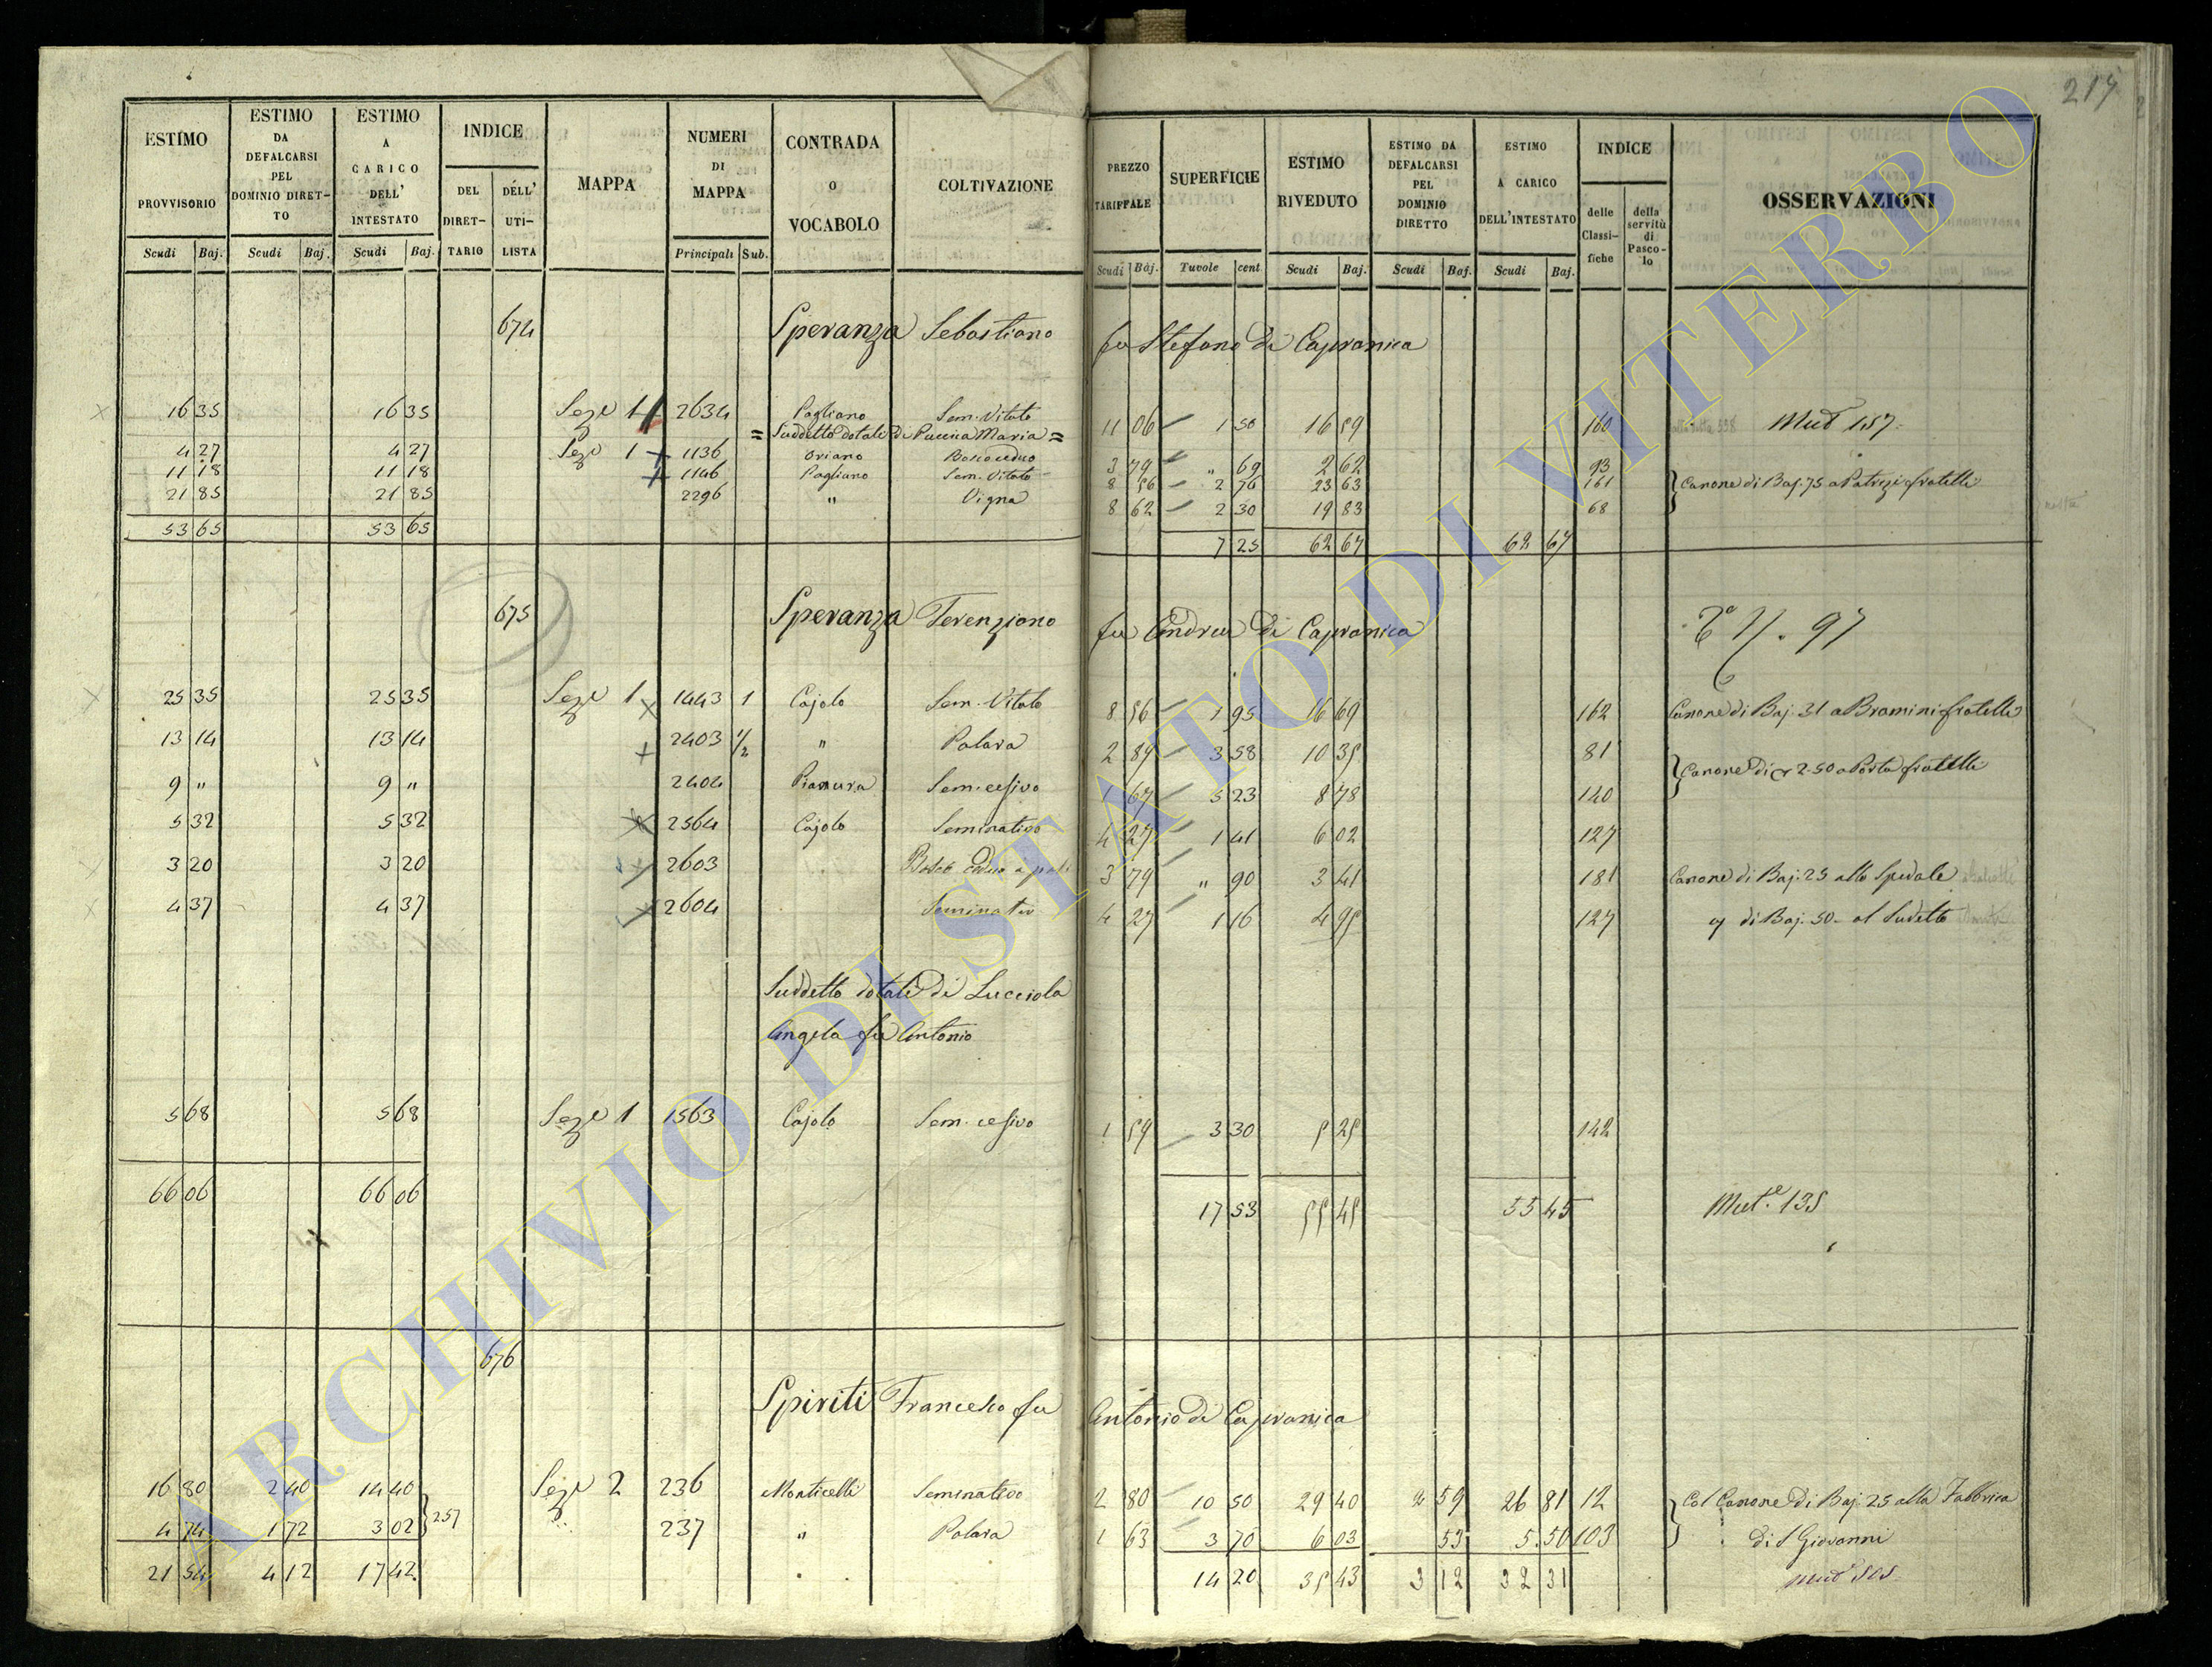 217
ESTIMO PROVVISORIO Scudi Baj.
ESTIMO DA DEFALCARSI PEL DOMINIO DIRET-TO Scudi Baj.
ESTIMO A CARICO DELL' INTESTATO Scudi Baj.
INDICE DEL DIRET-TARIO DELL' UTI-LISTA
MAPPA
NUMERI DI MAPPA Principali Sub.
CONTRADA o VOCABOLO
COLTIVAZIONE
PREZZO TARIFFALE Scudi Baj.
SUPERFICIE Tavole cent.
ESTIMO RIVEDUTO Scudi Baj.
ESTIMO DA DEFALCARSI PEL DOMINIO DIRETTO Scudi Baj.
ESTIMO A CARICO DELL'INTESTATO Scudi Baj.
INDICE delle Classi-fiche della servitù di Pasco-lo
OSSERVAZIONI
674 Speranza Sebastiano fu Stefano di Capranica
16 35 16 35 Seze 1 2634 Pagliano Sem. Vitato 11 06 1 50 16 59 160 Mut 157
= Suddetto dotale di Puccica Maria =
4 27 4 27 Seze 1 1136 Oriano Bosco ceduo 3 79 " 69 2 62 93
11 18 11 18 1146 Pagliano Sem. Vitato 8 56 2 76 23 63 161 Canone di Baj. 75 a Patrizi fratelli
21 85 21 85 2296 " Vigna 8 62 2 30 19 83 68
53 65 53 65 7 25 62 67 62 67
675 Speranza Terenziano fu Andrea di Capranica 97
25 35 25 35 Seze 1 1443 1 Cajolo Sem. Vitato 8 56 1 95 16 69 162 Canone di Baj. 31 a Bramini fratelli
13 14 13 14 2403 1/2 " Palara 2 89 3 58 10 35 81
9 " 9 " 2404 Pianura Sem. cesivo 1 67 5 23 8 78 140 Canone di 2.50 a Porta fratelli
5 32 5 32 2564 Cajolo Seminativo 4 27 1 41 6 02 127
3 20 3 20 2603 Bosco Ceduo a 3 79 " 90 3 41 181 Canone di Baj. 25 allo Spedale
4 37 4 37 2604 Seminativo 4 27 1 16 4 95 127 di Baj. 50 al Sudetto
Suddetto dotale di Lucciola
Angela fu Antonio
5 68 5 68 Seze 1 1563 Cajolo Sem. cesivo 1 59 3 30 5 25 142
66 06 66 06 17 53 55 45 55 45 Mut.e 135
676 Spiriti Francesco fu Antonio di Capranica
16 80 2 40 14 40 257 Seze 2 236 Monticelli Seminativo 2 80 10 50 29 40 2 59 26 81 12 Col Canone di Baj. 25 alla Fabbrica
4 74 1 72 3 02 237 " Palara 1 63 3 70 6 03 53 5.50 103 di S Giovanni
21 54 4 12 17 42 14 20 35 43 3 12 32 31
ARCHIVIO DI STATO DI VITERBO